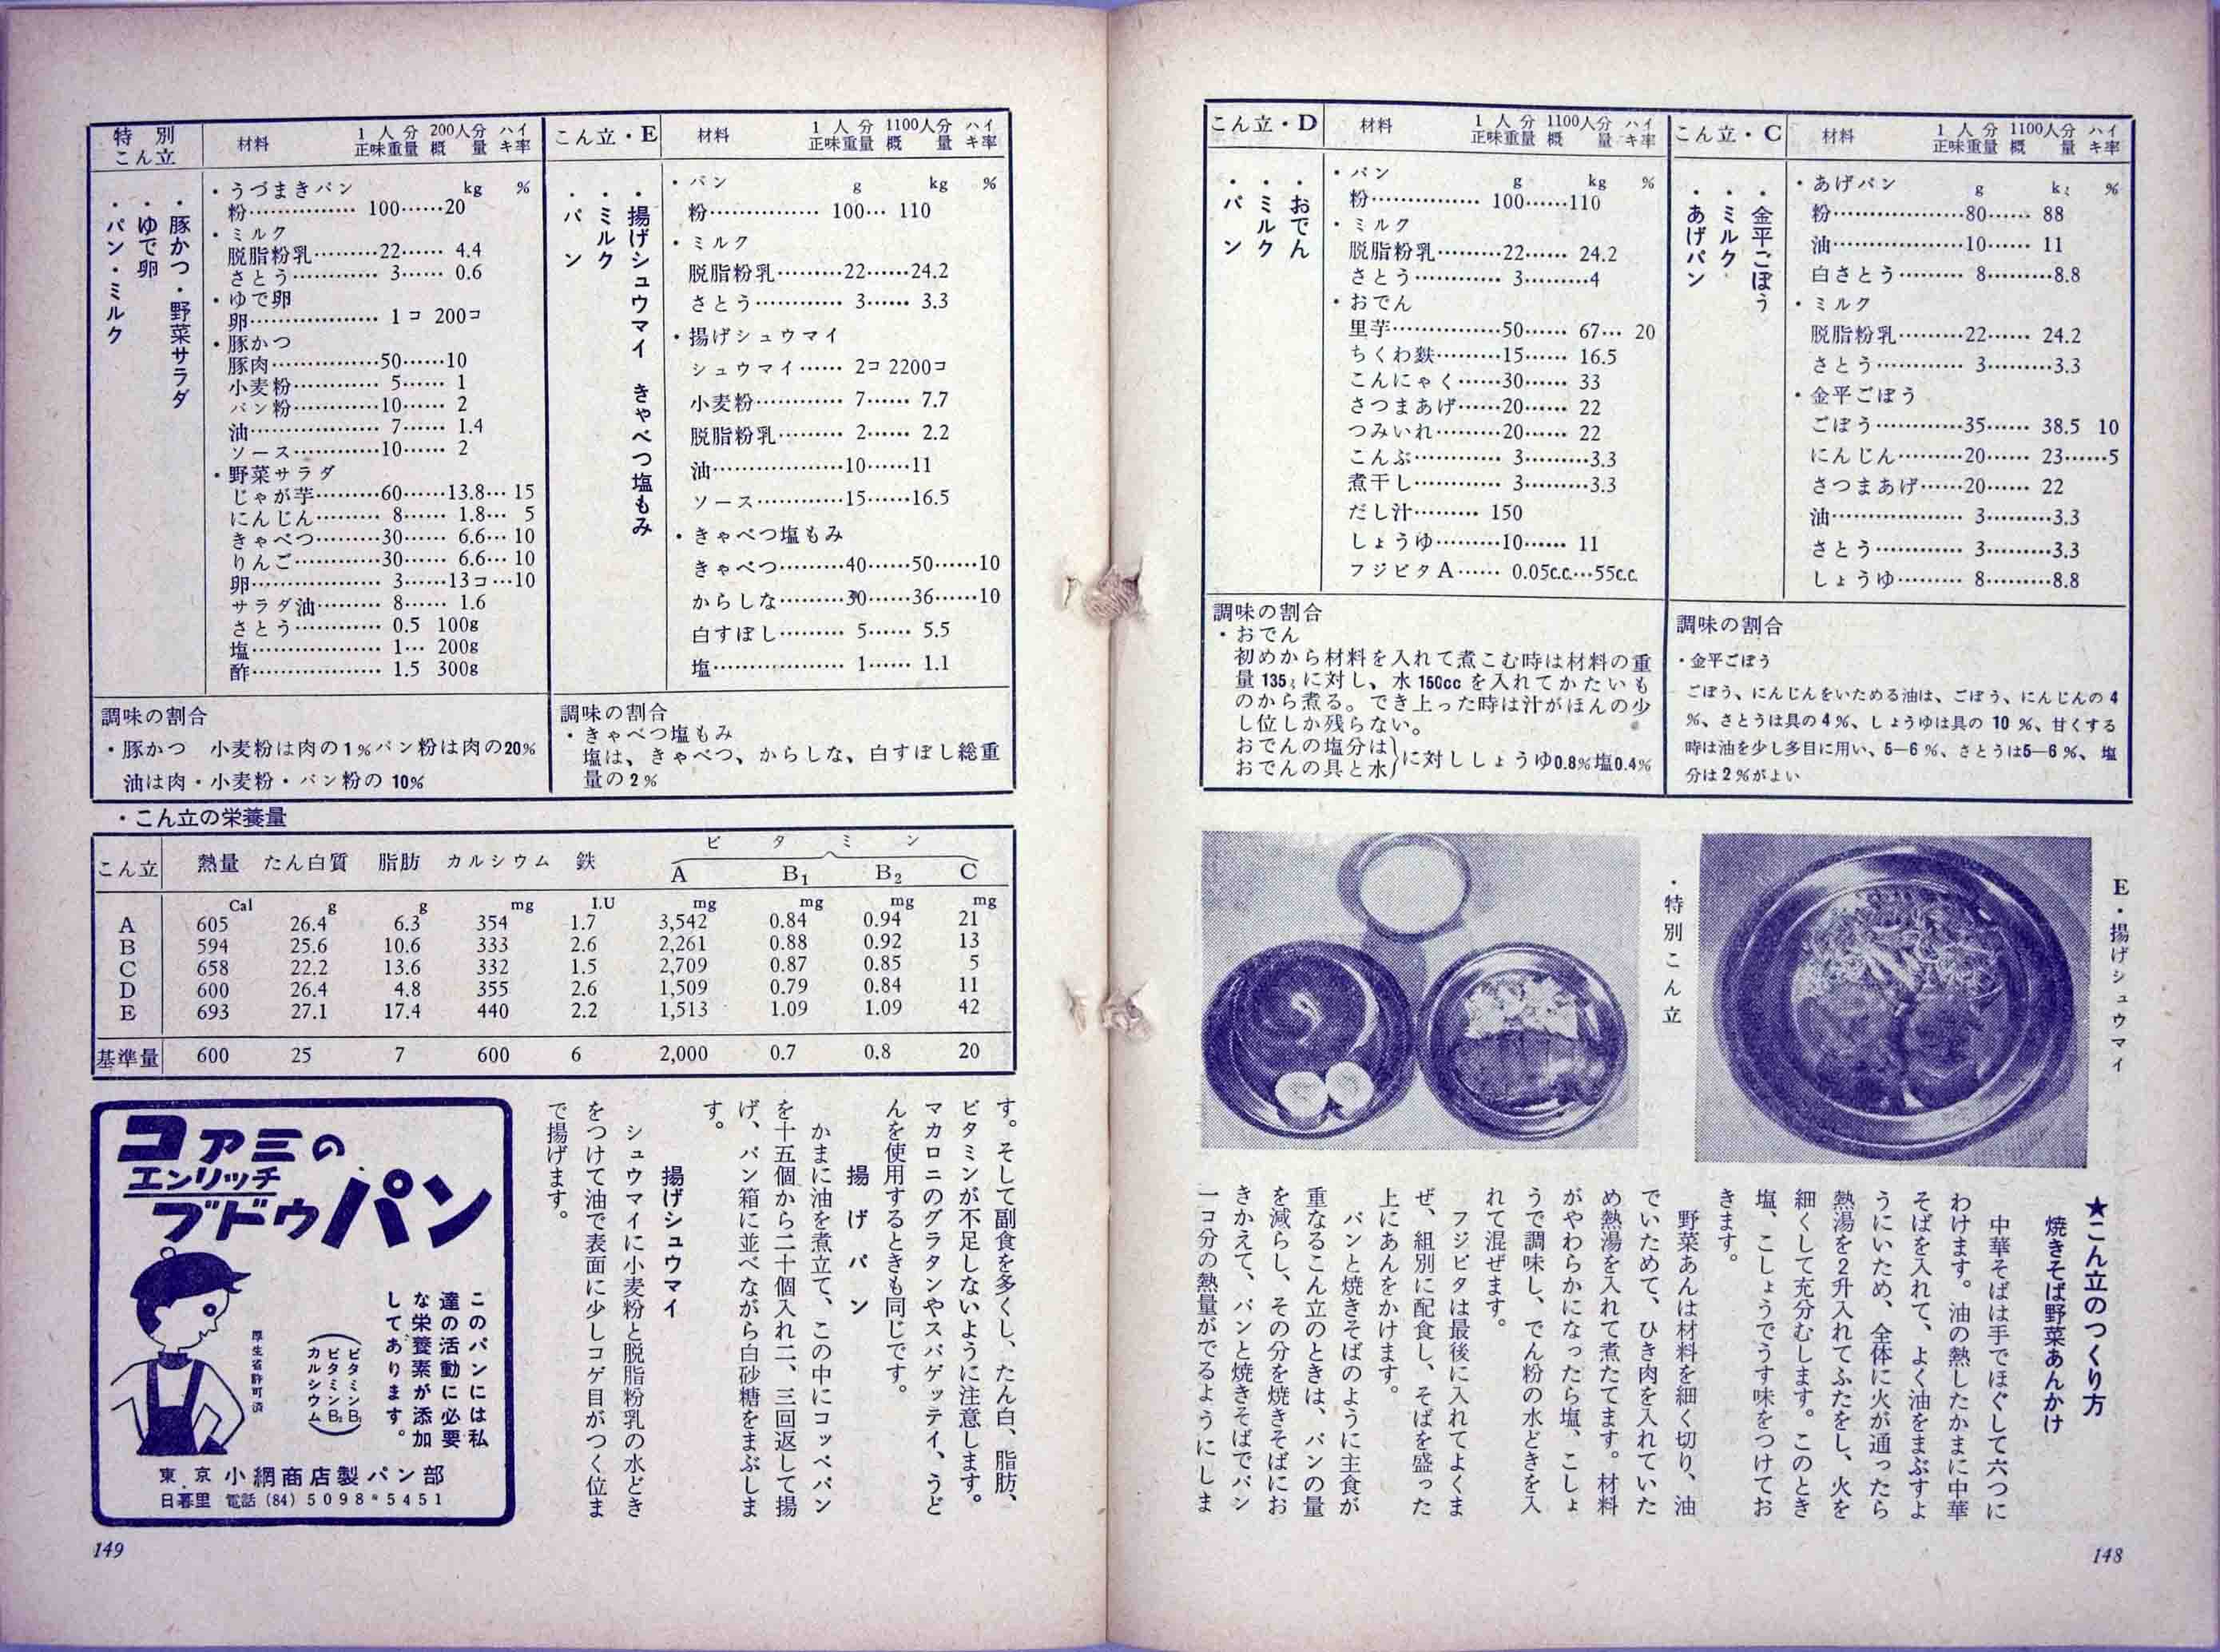 こん立・C 材料 1人分正味重量 1100人分概量 ハイキ率
・金平ごぼう
・ミルク
・あげパン
・あげパン g kg %
粉………………80…… 88
油………………10…… 11
白さとう……… 8………8.8
・ミルク
脱脂粉乳………22…… 24.2
さとう………… 3………3.3
・金平ごぼう
ごぼう…………35…… 38.5 10
にんじん………20…… 23……5
さつまあげ……20…… 22
油……………… 3………3.3
さとう………… 3………3.3
しょうゆ……… 8………8.8
調味の割合
・金平ごぼう
ごぼう、にんじんをいためる油は、ごぼう、にんじんの4
%、さとうは具の4%、しょうゆは具の 10 %、甘くする
時は油を少し多目に用い、5—6 %、さとうは5—6 %、塩
分は2%がよい
こん立・D 材料 1人分正味重量 1100人分概量 ハイキ率
・おでん
・ミルク
・パン
・パン g kg %
粉…………… 100……110
・ミルク
脱脂粉乳………22…… 24.2
さとう………… 3………4
・おでん
里芋……………50…… 67… 20
ちくわ麩………15…… 16.5
こんにゃく……30…… 33
さつまあげ……20…… 22
つみいれ………20…… 22
こんぶ………… 3………3.3
煮干し………… 3………3.3
だし汁……… 150
しょうゆ………10…… 11
フジビタA…… 0.05c.c.…55c.c.
調味の割合
・おでん
初めから材料を入れて煮こむ時は材料の重
量135gに対し、水150ccを入れてかたいも
のから煮る。でき上った時は汁がほんの少
し位しか残らない。
おでんの塩分は
おでんの具と水}に対ししょうゆ0.8%塩0.4%
E・揚げシュウマイ
・特別こん立
★こん立のつくり方
焼きそば野菜あんかけ
中華そばは手でほぐして六つに
わけます。油の熱したかまに中華
そばを入れて、よく油をまぶすよ
うにいため、全体に火が通ったら
熱湯を2升入れてふたをし、火を
細くして充分むします。このとき
塩、こしょうでうす味をつけてお
きます。
野菜あんは材料を細く切り、油
でいためて、ひき肉を入れていた
め熱湯を入れて煮たてます。材料
がやわらかになったら塩、こしょ
うで調味し、でん粉の水どきを入
れて混ぜます。
フジビタは最後に入れてよくま
ぜ、組別に配食し、そばを盛った
上にあんをかけます。
パンと焼きそばのように主食が
重なるこん立のときは、パンの量
を減らし、その分を焼きそばにお
きかえて、パンと焼きそばでパン
一コ分の熱量がでるようにしま
148
こん立・E 材料 1人分正味重量 1100人分概量 ハイキ率
・揚げシュウマイ きゃべつ塩もみ
・ミルク
・パン
・パン g kg %
粉…………… 100… 110
・ミルク
脱脂粉乳………22……24.2
さとう………… 3…… 3.3
・揚げシュウマイ
シュウマイ…… 2コ 2200コ
小麦粉………… 7…… 7.7
脱脂粉乳……… 2…… 2.2
油………………10……11
ソース…………15……16.5
・きゃべつ塩もみ
きゃべつ………40……50……10
からしな………30……36……10
白すぼし……… 5…… 5.5
塩……………… 1…… 1.1
調味の割合
・きゃべつ塩もみ
塩は、きゃべつ、からしな、白すぼし総重
量の2%
特別こん立 材料 1人分正味重量 200人分概量 ハイキ率
・豚かつ・野菜サラダ
・ゆで卵
・パン・ミルク
・うづまきパン kg %
粉…………… 100……20
・ミルク
脱脂粉乳………22…… 4.4
さとう………… 3…… 0.6
・ゆで卵
卵……………… 1コ 200コ
・豚かつ
豚肉……………50……10
小麦粉………… 5…… 1
パン粉…………10…… 2
油……………… 7…… 1.4
ソース…………10…… 2
・野菜サラダ
じゃが芋………60……13.8… 15
にんじん……… 8…… 1.8… 5
きゃべつ………30…… 6.6… 10
りんご…………30…… 6.6… 10
卵……………… 3……13コ…10
サラダ油……… 8…… 1.6
さとう………… 0.5 100g
塩……………… 1… 200g
酢……………… 1.5 300g
調味の割合
・豚かつ 小麦粉は肉の1%パン粉は肉の20%
油は肉・小麦粉・パン粉の 10%
・こん立の栄養量
こん立 熱量 たん白質 脂肪 カルシウム 鉄 ビタミン
A B1 B2 C
Cal g g mg I.U mg mg mg mg
A 605 26.4 6.3 354 1.7 3,542 0.84 0.94 21
B 594 25.6 10.6 333 2.6 2,261 0.88 0.92 13
C 658 22.2 13.6 332 1.5 2,709 0.87 0.85 5
D 600 26.4 4.8 355 2.6 1,509 0.79 0.84 11
E 693 27.1 17.4 440 2.2 1,513 1.09 1.09 42
基準量 600 25 7 600 6 2,000 0.7 0.8 20
す。そして副食を多くし、たん白、脂肪、
ビタミンが不足しないように注意します。
マカロニのグラタンやスパゲッテイ、うど
んを使用するときも同じです。
揚げパン
かまに油を煮立て、この中にコッペパン
を十五個から二十個入れ二、三回返して揚
げ、パン箱に並べながら白砂糖をまぶしま
す。
揚げシュウマイ
シュウマイに小麦粉と脱脂粉乳の水どき
をつけて油で表面に少しコゲ目がつく位ま
で揚げます。
コアミの
エンリッチ
ブドウパン
このパンには私
達の活動に必要
な栄養素が添加
してあります。
(ビタミンB1
ビタミンB2
カルシウム)
厚生省許可済
東京 小網商店製パン部
日暮里 電話(84)5098・5451
149